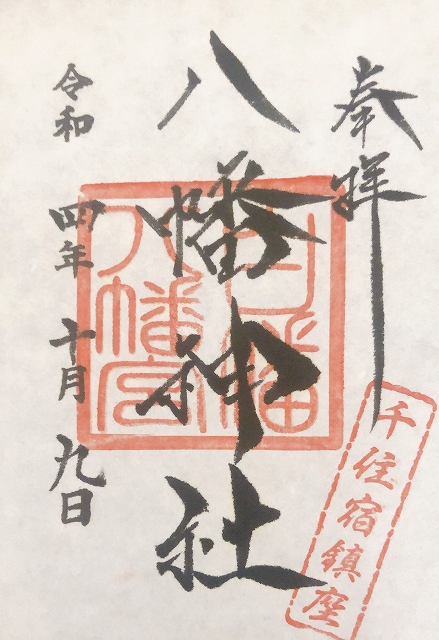 奉拝
八幡神社
令和四年十月九日
千住宿鎮座